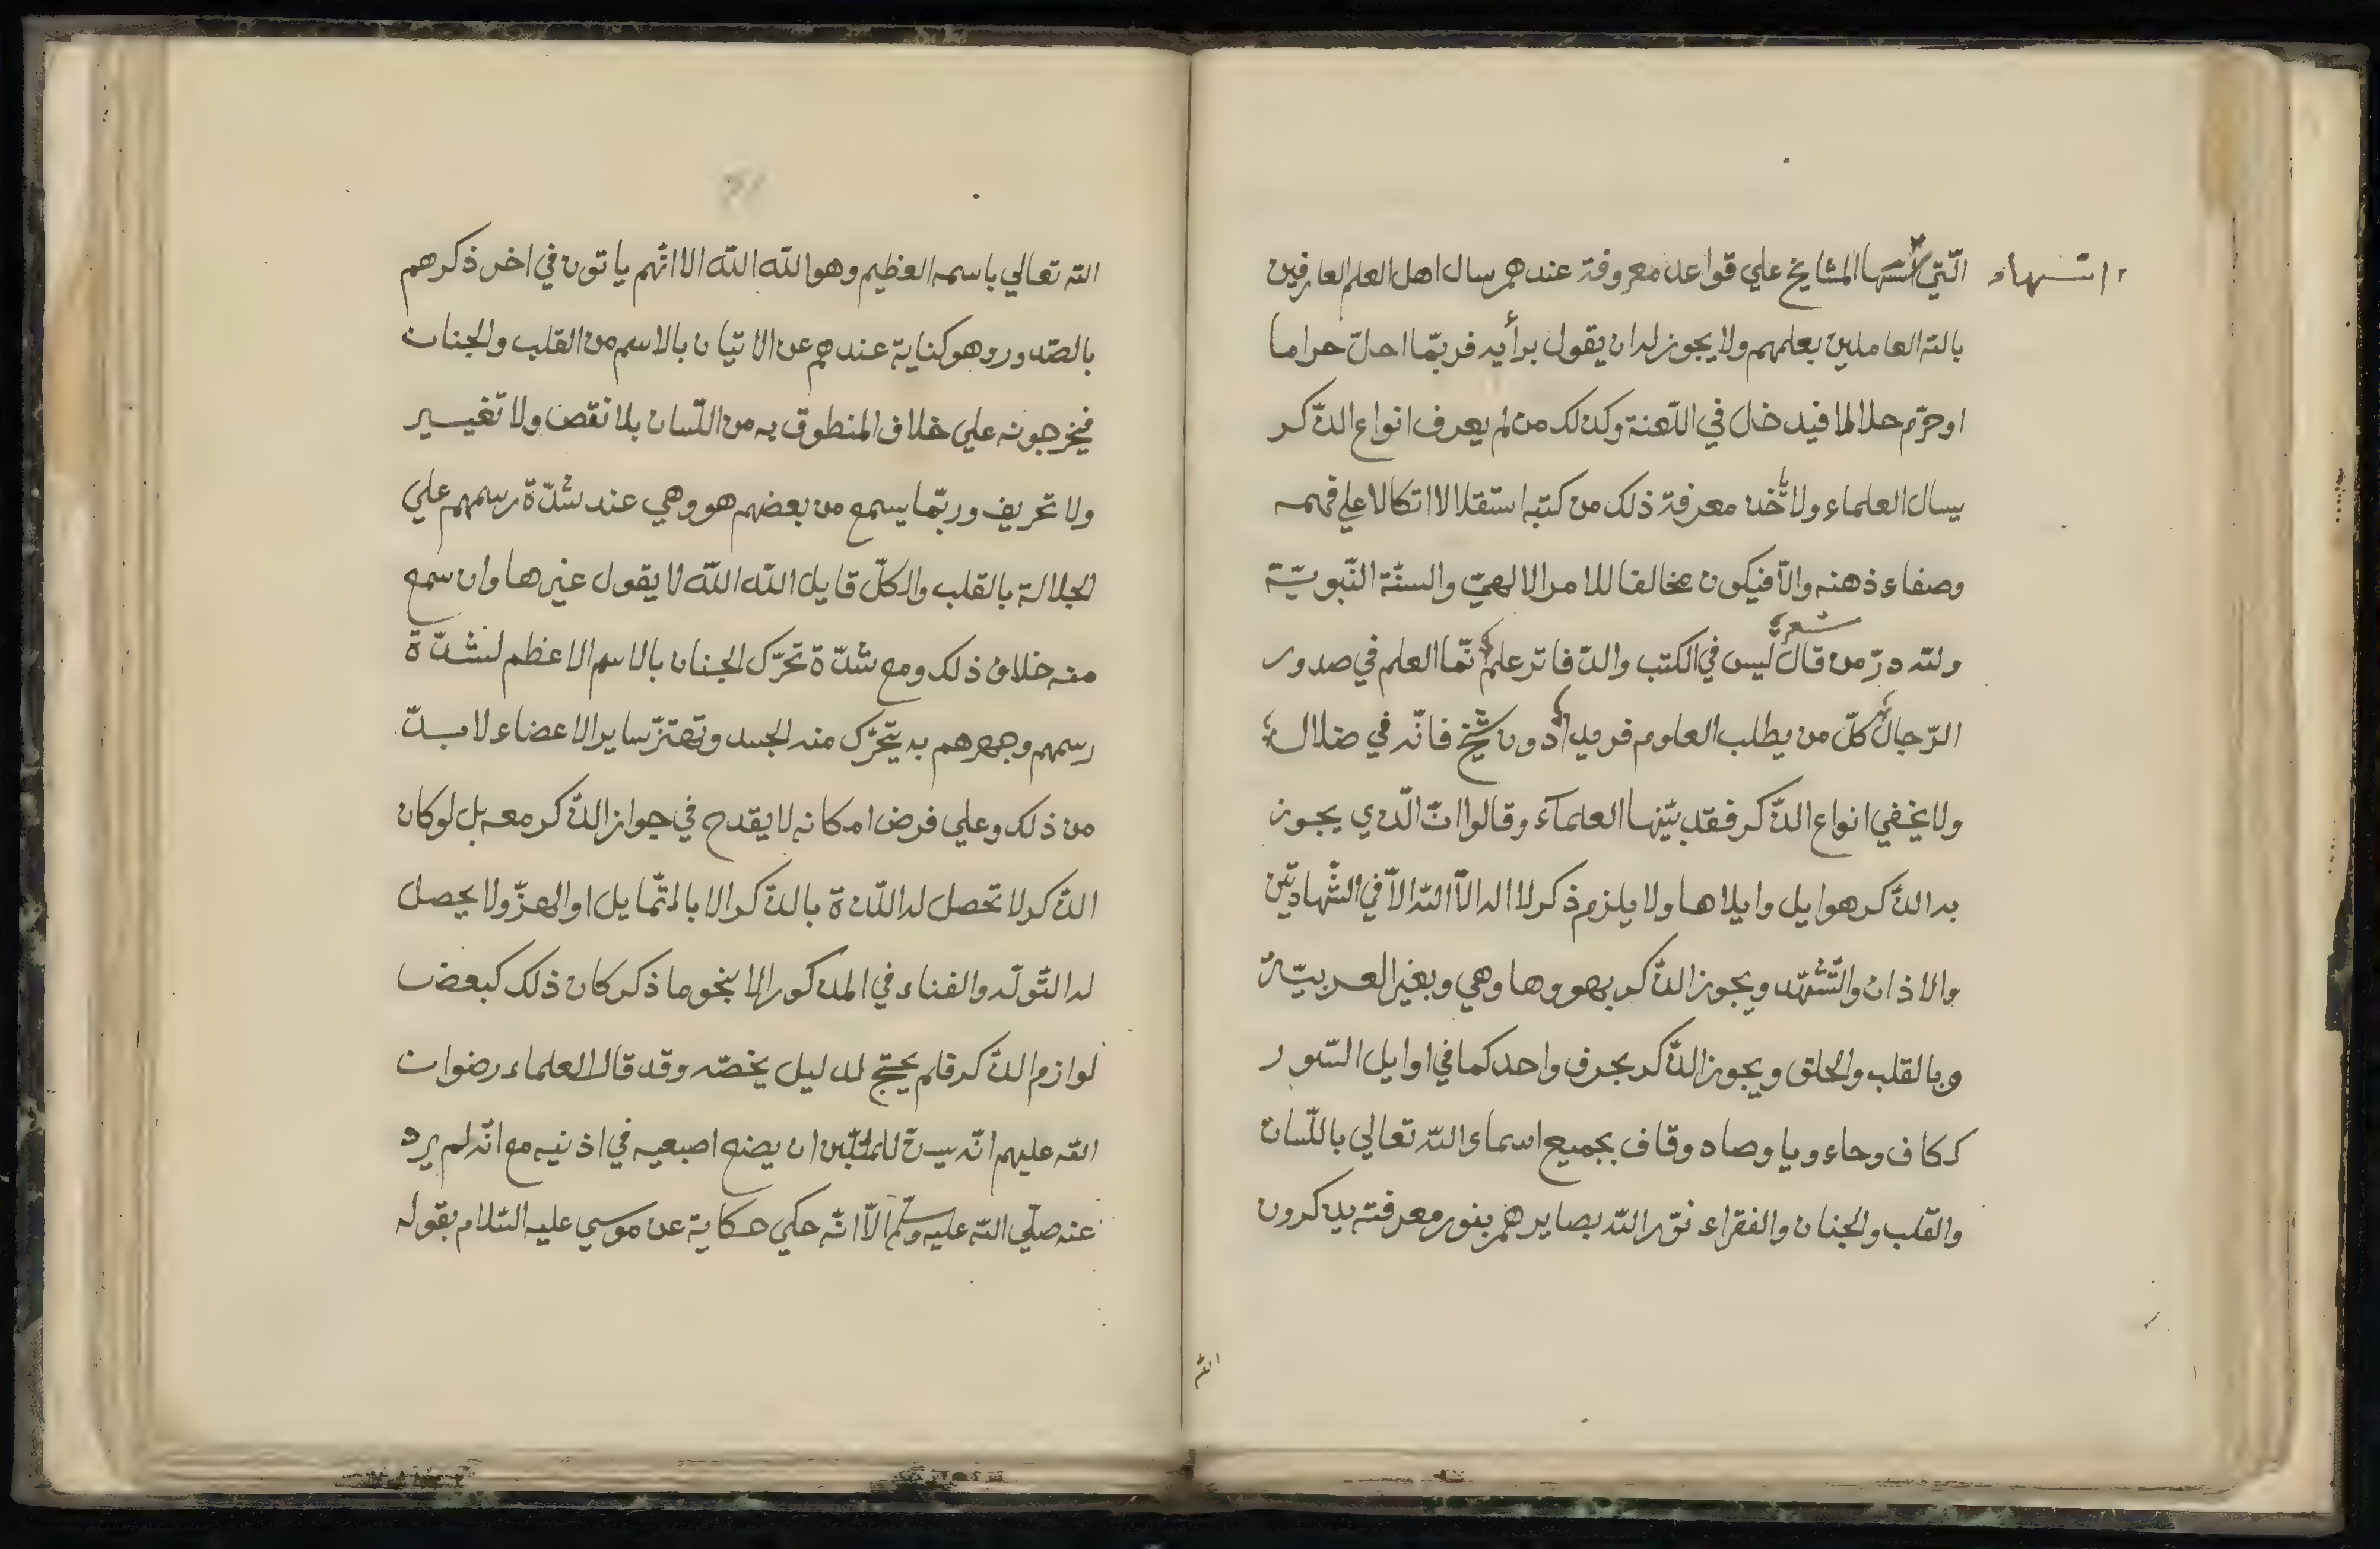 الّتي اسّسها المشايخ علي قواعد معروفة عندهم سال اهل العلم العارفين
اسّسها
بالله العاملين بعلمهم ولا يجوز له ان يقول برأيه فربّما احلّ حراما
او حرّم حلالا فيدخل في اللّعنة وكذلك من لم يعرف انواع الذّكر
يسال العلماء ولا يأخذ معرفة ذلك من كتبه استقلالا اتكالا علي فهمه
وصفاء ذهنه والّا فيكون مخالفا للامر الالهيّ والسنّة النّبويّة
شعر
ولله درّ من قال ليس في الكتب والدّفاتر علم انّما العلم في صدور
الرّجال كلّ من يطلب العلوم فريدا دون شيخ فانّه في ضلال
ولا يخفي انواع الذّكر فقد بيّنها العلمآء وقالوا انّ الّذي يجوز
به الذّكر هو ايل وايلاها ولا يلزم ذكر لا اله الّا الله الّا في الشّهادتين
والاذان والتّشهّد ويجوز الذّكر بهو وها وهي وبغير العربيّة
وبالقلب والحلق ويجوز الذّكر بحرف واحد كما في اوايل السّور
ككاف وحاء ويا وصاد وقاف بجميع اسماء الله تعالي باللّسان
والقلب والجنان والفقراء نوّر الله بصايرهم بنور معرفته يذكرون
الله
الله تعالي باسمه العظيم وهو الله الله الا انّهم ياتون في اخر ذكرهم
بالصّدور وهو كناية عندهم عن الاتيان بالاسم من القلب والجنان
فيخرجونه علي خلاف المنطوق به من اللّسان بلا نقص ولا تغيير
ولا تحريف وربّما يسمع من بعضهم هو وهي عند شدّة رسمهم علي
الجلالة بالقلب والكلّ قايل الله الله لا يقول غيرها وان سمع
منه خلاف ذلك ومع شدّة تحرّك الجنان بالاسم الاعظم لشدّة
رسمهم وجهرهم به يتحرّك منه الجسد وتهتزّ ساير الاعضاء لا بدّ
من ذلك وعلي فرض امكانه لا يقدح في جواز الذّكر معه بل لو كان
الذّكر لا تحصل له اللّذة بالذّكر الا بالتّمايل او الهزّ ولا يحصل
له التّولّه والفناء في المذكور الا بنحو ما ذكر كان ذلك كبعض
لوازم الذّكر فلم يحتج لدليل يخصّه وقد قال العلماء رضوان
الله عليهم انّه يسنّ للملبّين ان يضع اصبعيه في اذنيه مع انّه لم يرد
عنه صلّي الله عليه وسلّم الّا انّه حكي حكاية عن موسي عليه السّلام بقوله